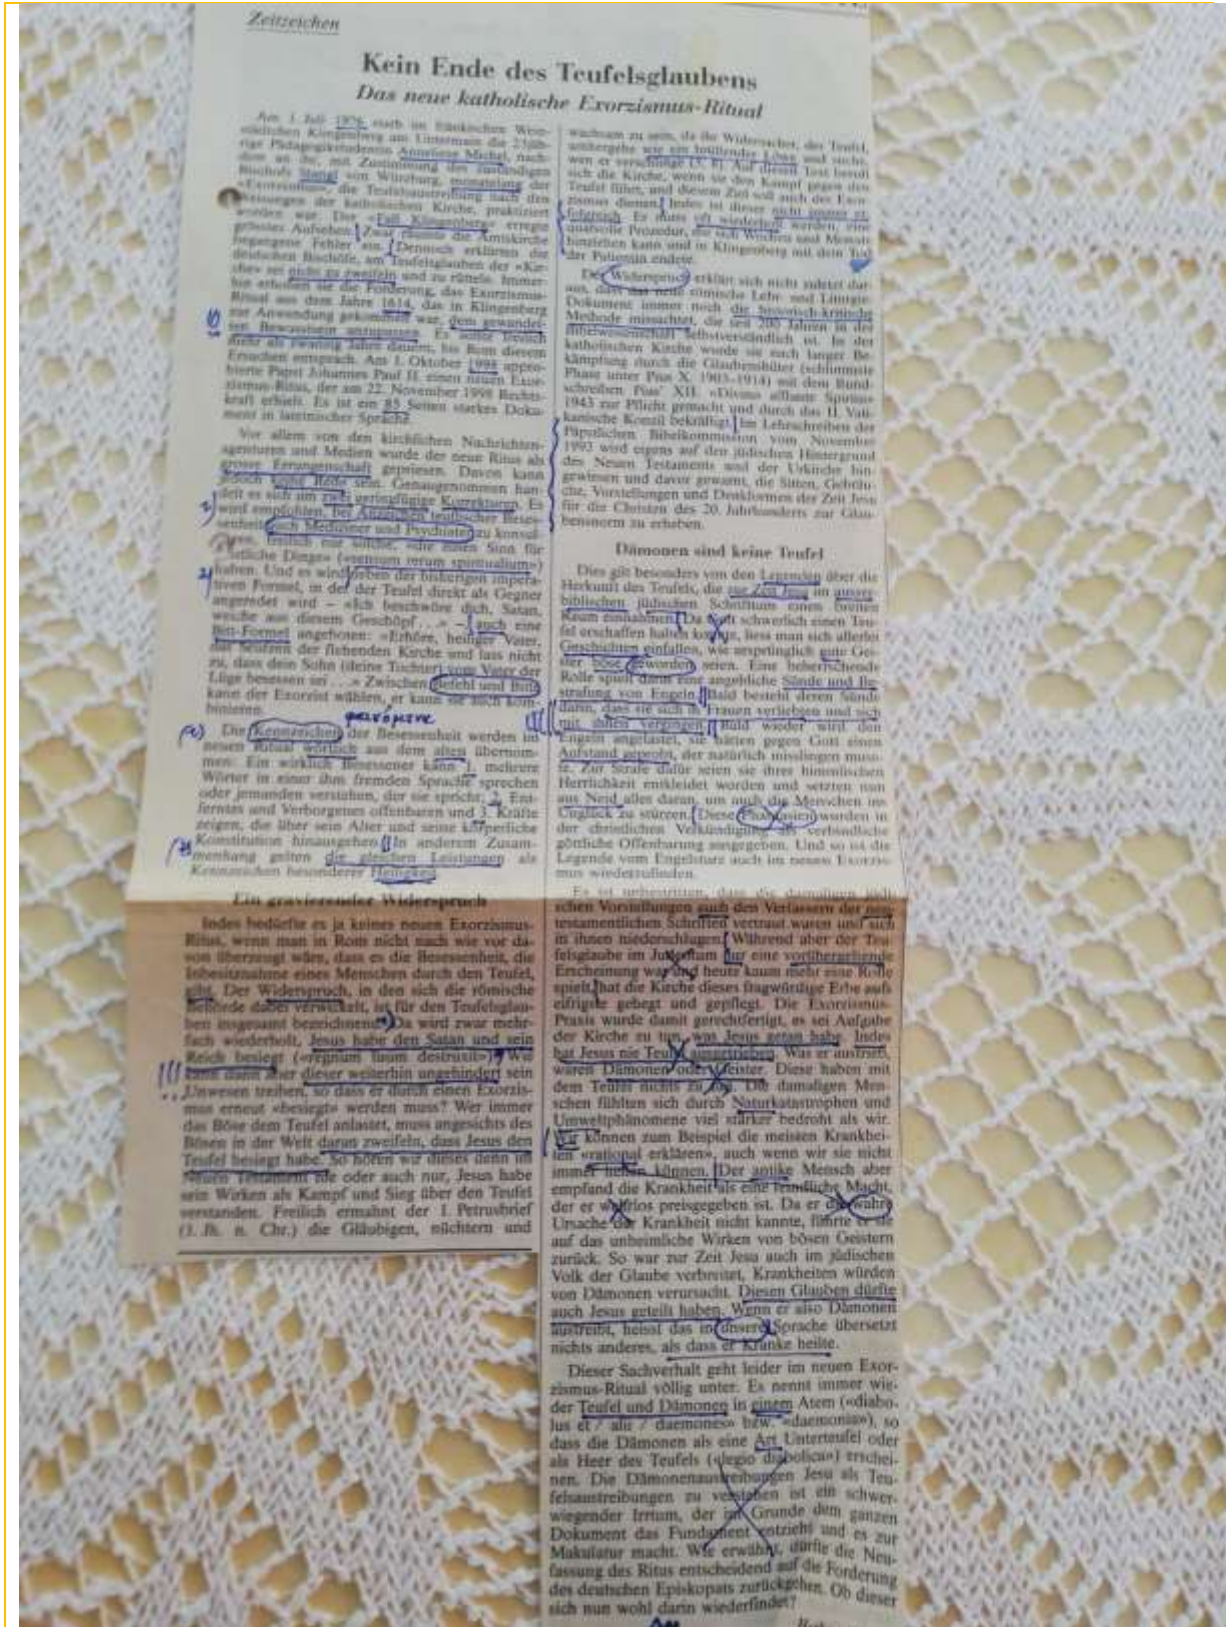 Zeitzeichen
Kein Ende des Teufelsglaubens
Das neue katholische Exorzismus-Ritual
Am 1. Juli 1976 starb im fränkischen Wein-
städtchen Klingenberg am Untermain die 23jäh-
rige Pädagogikstudentin Anneliese Michel, nach-
dem an ihr, mit Zustimmung des zuständigen
Bischofs Stangl von Würzburg, monatelang der
«Exorzismus», die Teufelsaustreibung nach den
Weisungen der katholischen Kirche, praktiziert
worden war. Der «Fall Klingenberg» erregte
grosses Aufsehen. Zwar räumte die Amtskirche
begangene Fehler ein. Dennoch erklärten die
deutschen Bischöfe, am Teufelsglauben der «Kir-
che» sei nicht zu zweifeln und zu rütteln. Immer-
hin erhoben sie die Forderung, das Exorzismus-
Ritual aus dem Jahre 1614, das in Klingenberg
zur Anwendung gekommen war, dem gewandel-
ten Bewusstsein anzupassen. Es sollte freilich
mehr als zwanzig Jahre dauern, bis Rom diesem
Ersuchen entsprach. Am 1. Oktober 1998 appro-
bierte Papst Johannes Paul II. einen neuen Exor-
zismus-Ritus, der am 22. November 1998 Rechts-
kraft erhielt. Es ist ein 85 Seiten starkes Doku-
ment in lateinischer Sprache.
Vor allem von den kirchlichen Nachrichten-
agenturen und Medien wurde der neue Ritus als
grosse Errungenschaft gepriesen. Davon kann
jedoch keine Rede sein. Genaugenommen han-
delt es sich um zwei geringfügige Korrekturen. Es
wird empfohlen, bei Anzeichen teuflischer Beses-
senheit auch Mediziner und Psychiater zu konsul-
tieren, freilich nur solche, «die einen Sinn für
geistliche Dinge» («sensum rerum spiritualium»)
haben. Und es wird neben der bisherigen impera-
tiven Formel, in der der Teufel direkt als Gegner
angeredet wird – «Ich beschwöre dich, Satan,
weiche aus diesem Geschöpf . . .» –, auch eine
Bitt-Formel angeboten: «Erhöre, heiliger Vater,
das Seufzen der flehenden Kirche und lass nicht
zu, dass dein Sohn (deine Tochter) vom Vater der
Lüge besessen sei . . .» Zwischen Befehl und Bitte
kann der Exorzist wählen, er kann sie auch kom-
binieren.
φαινόμενα
Die Kennzeichen der Besessenheit werden im
neuen Ritual wörtlich aus dem alten übernom-
men: Ein wirklich Besessener kann 1. mehrere
Wörter in einer ihm fremden Sprache sprechen
oder jemanden verstehen, der sie spricht; 2. Ent-
ferntes und Verborgenes offenbaren und 3. Kräfte
zeigen, die über sein Alter und seine körperliche
Konstitution hinausgehen. In anderem Zusam-
menhang gelten die gleichen Leistungen als
Kennzeichen besonderer Heiligkeit.
Ein gravierender Widerspruch
Indes bedürfte es ja keines neuen Exorzismus-
Ritus, wenn man in Rom nicht nach wie vor da-
von überzeugt wäre, dass es die Besessenheit, die
Inbesitznahme eines Menschen durch den Teufel,
gibt. Der Widerspruch, in den sich die römische
Behörde dabei verwickelt, ist für den Teufelsglau-
ben insgesamt bezeichnend. Da wird zwar mehr-
fach wiederholt, Jesus habe den Satan und sein
Reich besiegt («regnum suum destruxit»). Wie
kann dann aber dieser weiterhin ungehindert sein
Unwesen treiben, so dass er durch einen Exorzis-
mus erneut «besiegt» werden muss? Wer immer
das Böse dem Teufel anlastet, muss angesichts des
Bösen in der Welt daran zweifeln, dass Jesus den
Teufel besiegt habe. So hören wir dieses denn im
Neuen Testament nie oder auch nur, Jesus habe
sein Wirken als Kampf und Sieg über den Teufel
verstanden. Freilich ermahnt der 1. Petrusbrief
(1. Jh. n. Chr.) die Gläubigen, nüchtern und
wachsam zu sein, da ihr Widersacher, der Teufel,
umhergehe wie ein brüllender Löwe und suche,
wen er verschlinge (5, 8). Auf diesen Text beruft
sich die Kirche, wenn sie den Kampf gegen den
Teufel führt, und diesem Ziel soll auch der Exor-
zismus dienen. Indes ist dieser nicht immer er-
folgreich. Er muss oft wiederholt werden, eine
qualvolle Prozedur, die sich Wochen und Monate
hinziehen kann und in Klingenberg mit dem Tod
der Patientin endete.
Der Widerspruch erklärt sich nicht zuletzt dar-
aus, dass das neue römische Lehr- und Liturgie-
Dokument immer noch die historisch-kritische
Methode missachtet, die seit 200 Jahren in der
Bibelwissenschaft selbstverständlich ist. In der
katholischen Kirche wurde sie nach langer Be-
kämpfung durch die Glaubenshüter (schlimmste
Phase unter Pius X. 1903–1914) mit dem Rund-
schreiben Pius' XII. «Divino afflante Spiritu»
1943 zur Pflicht gemacht und durch das II. Vati-
kanische Konzil bekräftigt. Im Lehrschreiben der
Päpstlichen Bibelkommission vom November
1993 wird eigens auf den jüdischen Hintergrund
des Neuen Testaments und der Urkirche hin-
gewiesen und davor gewarnt, die Sitten, Gebräu-
che, Vorstellungen und Denkformen der Zeit Jesu
für die Christen des 20. Jahrhunderts zur Glau-
bensnorm zu erheben.
Dämonen sind keine Teufel
Dies gilt besonders von den Legenden über die
Herkunft des Teufels, die zur Zeit Jesu im ausser-
biblischen jüdischen Schrifttum einen breiten
Raum einnahmen. Da Gott schwerlich einen Teu-
fel erschaffen haben konnte, liess man sich allerlei
Geschichten einfallen, wie ursprünglich gute Gei-
ster böse geworden seien. Eine beherrschende
Rolle spielt darin eine angebliche Sünde und Be-
strafung von Engeln. Bald besteht deren Sünde
darin, dass sie sich in Frauen verliebten und sich
mit ihnen vergingen. Bald wieder wird den
Engeln angelastet, sie hätten gegen Gott einen
Aufstand geprobt, der natürlich misslingen muss-
te. Zur Strafe dafür seien sie ihrer himmlischen
Herrlichkeit entkleidet worden und setzten nun
aus Neid alles daran, um auch die Menschen ins
Unglück zu stürzen. Diese Phantasien wurden in
der christlichen Verkündigung als verbindliche
göttliche Offenbarung ausgegeben. Und so ist die
Legende vom Engelsturz auch im neuen Exorzis-
mus wiederzufinden.
Es ist unbestritten, dass die damaligen jüdi-
schen Vorstellungen auch den Verfassern der neu-
testamentlichen Schriften vertraut waren und sich
in ihnen niederschlugen. Während aber der Teu-
felsglaube im Judentum nur eine vorübergehende
Erscheinung war und heute kaum mehr eine Rolle
spielt, hat die Kirche dieses fragwürdige Erbe aufs
eifrigste gehegt und gepflegt. Die Exorzismus-
Praxis wurde damit gerechtfertigt, es sei Aufgabe
der Kirche zu tun, was Jesus getan habe. Indes
hat Jesus nie Teufel ausgetrieben. Was er austrieb,
waren Dämonen oder Geister. Diese haben mit
dem Teufel nichts zu tun. Die damaligen Men-
schen fühlten sich durch Naturkatastrophen und
Umweltphänomene viel stärker bedroht als wir.
Wir können zum Beispiel die meisten Krankhei-
ten «rational erklären», auch wenn wir sie nicht
immer heilen können. Der antike Mensch aber
empfand die Krankheit als eine feindliche Macht,
der er wehrlos preisgegeben ist. Da er die wahre
Ursache der Krankheit nicht kannte, führte er sie
auf das unheimliche Wirken von bösen Geistern
zurück. So war zur Zeit Jesu auch im jüdischen
Volk der Glaube verbreitet, Krankheiten würden
von Dämonen verursacht. Diesen Glauben dürfte
auch Jesus geteilt haben. Wenn er also Dämonen
austreibt, heisst das in unsere Sprache übersetzt
nichts anderes, als dass er Kranke heilte.
Dieser Sachverhalt geht leider im neuen Exor-
zismus-Ritual völlig unter. Es nennt immer wie-
der Teufel und Dämonen in einem Atem («diabo-
lus et / alii / daemones» bzw. «daemonia»), so
dass die Dämonen als eine Art Unterteufel oder
als Heer des Teufels («legio diabolica») erschei-
nen. Die Dämonenaustreibungen Jesu als Teu-
felsaustreibungen zu verstehen ist ein schwer-
wiegender Irrtum, der im Grunde dem ganzen
Dokument das Fundament entzieht und es zur
Makulatur macht. Wie erwähnt, dürfte die Neu-
fassung des Ritus entscheidend auf die Forderung
des deutschen Episkopats zurückgehen. Ob dieser
sich nun wohl darin wiederfindet?